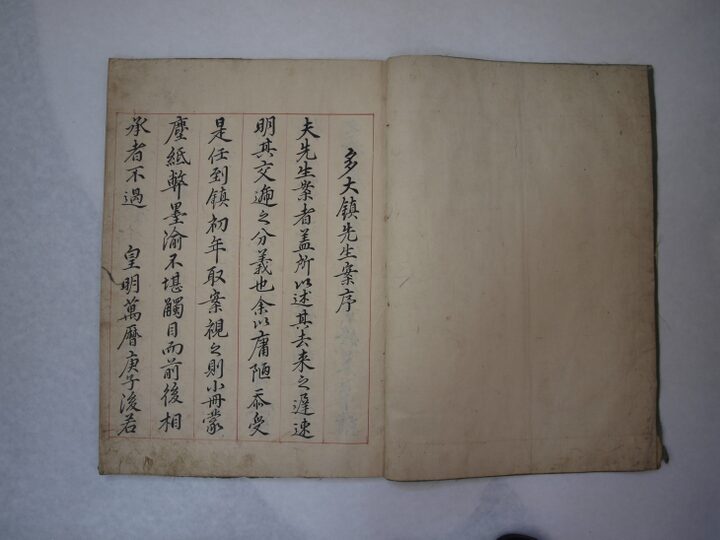 多大镇先生案序
夫先生案者盖所以述其去来之遅速
明其交逓之分義也余以庸陋忝受
是任到镇初年取案視之則小冊蒙
塵紙弊墨渝不堪觸目而前後相
承者不過 皇明萬曆庚子後若